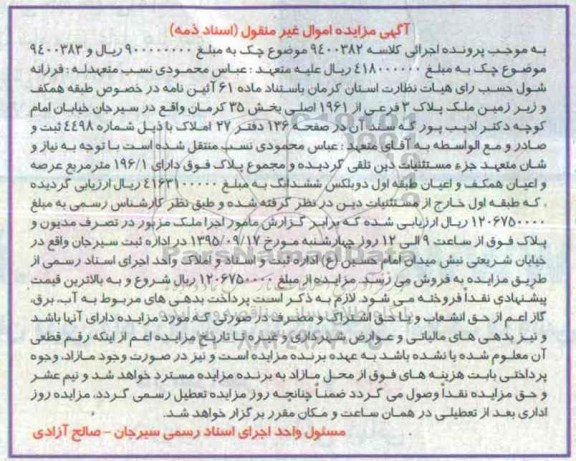 آگهی مزایده اموال غیر منقول (اسناد ذمه)
به موجب پرونده اجرائی کلاسه ۹٤۰۰۳۸۲ موضوع چک به مبلغ ۹۰۰۰۰۰۰۰۰ ریال و ۹٤۰۰۳۸۳
موضوع چک به مبلغ ٤۱۸۰۰۰۰۰۰ ریال علیه متعهد : عباس محمودی نسب متعهدله : فرزانه
شول حسب رای هیات نظارت استان کرمان باستناد ماده ۶۱ آئین نامه در خصوص طبقه همکف
و زیر زمین ملک پلاک ۳ فرعی از ۱۹۶۱ اصلی بخش ۳۵ کرمان واقع در سیرجان خیابان امام
کوچه دکتر ادیب پور که سند آن در صفحه ۱۳۶ دفتر ۲۷ املاک با ذیل شماره ٤٤۹۸ ثبت و
صادر و مع الواسطه به آقای متعهد : عباس محمودی نسب منتقل شده است با توجه به نیاز و
شان متعهد جزء مستثنیات دین تلقی گردیده و مجموع پلاک فوق دارای ۱۹۶/۱ مترمربع عرصه
و اعیان همکف و اعیان طبقه اول دوبلکس ششدانگ به مبلغ ٤۱۶۳۱۰۰۰۰۰ ریال ارزیابی گردیده
، که طبقه اول خارج از مستثنیات دین در نظر گرفته شده و طبق نظر کارشناس رسمی به مبلغ
۱۲۰۶۷۵۰۰۰۰ ریال ارزیابی شده که برابر گزارش مامور اجرا ملک مزبور در تصرف مدیون و
پلاک فوق از ساعت ۹ الی ۱۲ روز چهارشنبه مورخ ۱۳۹۵/۰۹/۱۷ در اداره ثبت سیرجان واقع در
خیابان شریعتی نبش میدان امام حسین (ع) اداره ثبت و اسناد و املاک واحد اجرای اسناد رسمی از
طریق مزایده به فروش می رسد. مزایده از مبلغ ۱۲۰۶۷۵۰۰۰۰ ریال شروع و به بالاترین قیمت
پیشنهادی نقداً فروخته می شود. لازم به ذکر است پرداخت بدهی های مربوط به آب، برق،
گاز اعم از حق انشعاب و یا حق اشتراک و مصرف در صورتی که مورد مزایده دارای آنها باشد
و نیز بدهی های مالیاتی و عوارض شهرداری و غیره تا تاریخ مزایده اعم از اینه رقم قطعی
آن معلوم شده یا نشده باشد به عهده برنده مزایده است و نیز در صورت وجود مازاد، وجوه
پرداختی بابت هزینه های فوق از محل مازاد به برنده مزایده مسترد خواهد شد و نیم عشر
و حق مزایده نقداً وصول می گردد ضمناً چنانچه روز مزایده تعطیل رسمی گردد، مزایده روز
اداری بعد از تعطیلی در همان ساعت و مکان مقرر برگزار خواهد شد.
مسئول واحد اجرای اسناد رسمی سیرجان – صالح آزادی